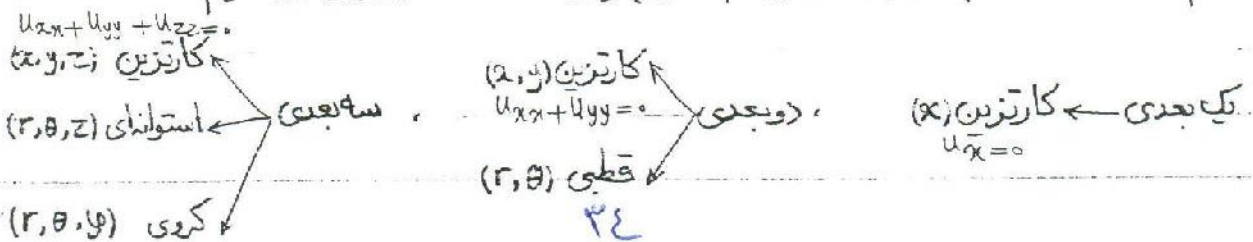 یک بعدی ← کارتزین (x)
u_x̄ = 0
، دوبعدی
کارتزین (x, y)
u_xx + u_yy = 0
قطبی (r, θ)
، سه بعدی
u_xx + u_yy + u_zz = 0
کارتزین (x, y, z)
استوانه‌ای (r, θ, z)
کروی (r, θ, φ)
۳٤